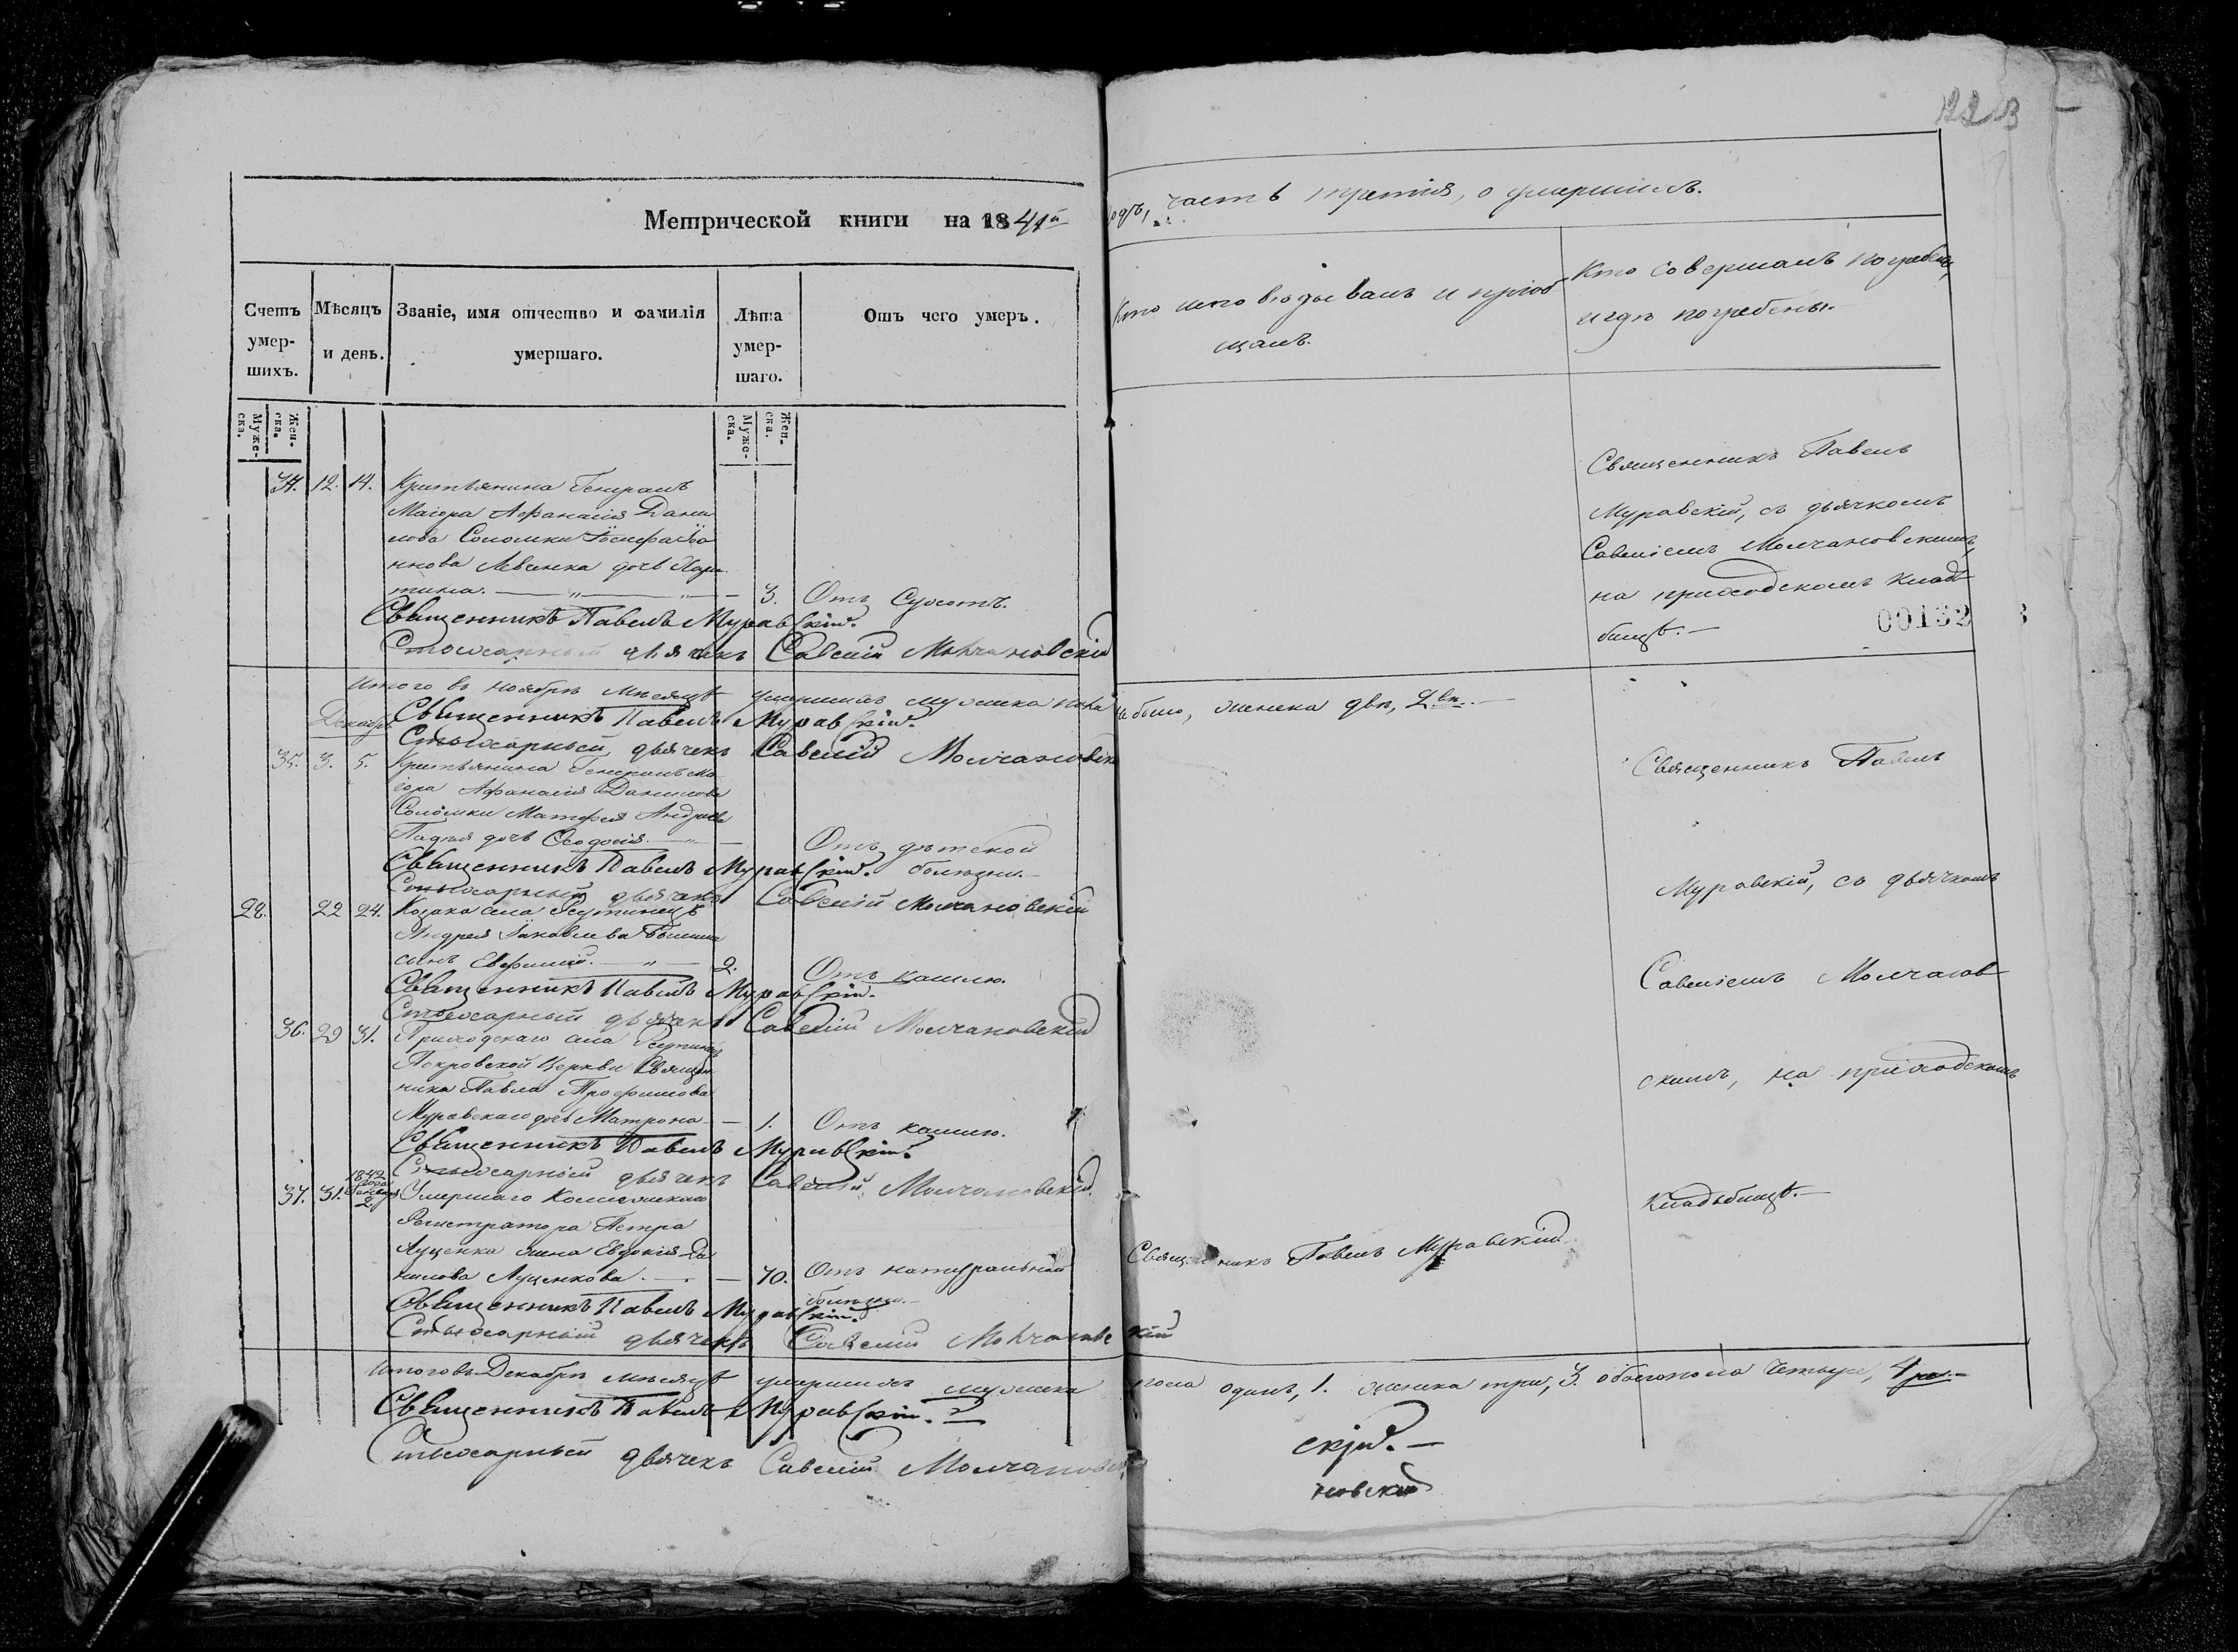 1223
Метрической книги на 1841й
одъ, часть третія, о умершихъ.
Счетъ умер-шихъ.
Мѣсяцъ и день.
Званіе, имя отчество и фамилія умершаго.
Лѣта умер-шаго.
Отъ чего умеръ.
Кто исповѣдывалъ и пріоб
щалъ.
Кто совершалъ погребен,
и гдѣ погребены.
Муже-ска.
Жен-ска.
Муже-ска.
Жен-ска.
34. 12. 14. Крестьянина Генералъ
Маіора Афанасія Дани
лова Соломки Іосифа Іоа
ннова Левченка дочь Хари
тина. 3. Отъ сухотъ.
Священникъ Павелъ Муравскій.
Стихарный дьячекъ Савелій Молчановскій
Священникъ Павелъ
Муравскій, съ дьячкомъ
Савеліемъ Молчановскимъ,
на приходскомъ клад
бищѣ.
00132
Итого въ ноябрѣ мѣсяцѣ умершихъ мужеска пола не было, женска двѣ, 2 вѣ.
Священникъ Павелъ Муравскій.
Декабрь
Стихарный дьячекъ Савелій Молчановскій
35. 3. 5. Крестьянина Генералъ Ма
іора Афанасія Данилова
Соломки Матфея Андреева
дочь Феодосія. Отъ дѣтской
болѣзни.
Священникъ Павелъ Муравскій.
Стихарный дьячекъ Савелій Молчановскій
28. 22 24. Козака села
Андрея Іаковлева
сынъ Евфимій. 2. Отъ кашлю.
Священникъ Павелъ Муравскій.
Стихарный дьячекъ Савелій Молчановскій
36. 29 31. Приходскаго села
Покровской Церкви Священ
ника Павла Трофимова
Муравскаго дочь Матрона 1. Отъ кашлю.
Священникъ Павелъ Муравскій.
Стихарный дьячекъ Савелій Молчановскій
37. 31. 1842 года Января 2. Умершаго Коллежскаго
Регистратора Петра
Луценка жена Евдокія Да
нилова Луценкова. 70. Отъ натуральной
болѣзни.
Священникъ Павелъ Муравскій
Священникъ Павелъ Муравскій.
Стихарный дьячекъ Савелій Молчановскій
Священникъ Павелъ
Муравскій, съ дьячкомъ
Савеліемъ Молчанов
скимъ, на приходскомъ
кладбищѣ.
Итого въ Декабрѣ мѣсяцѣ умершихъ мужеска пола одинъ, 1. женска три, 3. обоего пола четыре, 4 ре.
Священникъ Павелъ Муравскій.
скій.
Стихарный дьячекъ Савелій Молчановскій
новскій